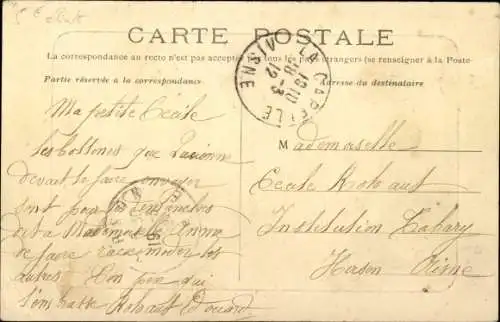 CARTE POSTALE
La correspondance au recto n'est pas acceptée par tous les pays étrangers (se renseigner à la Poste
Partie réservée à la correspondance
Adresse du destinataire
LA CAPELLE
AISNE
18 10
18 -3
12
Ma petite Cécile
les bottines que Lucienne
devait te faire envoyer
sont pour les
dit à Mademoiselle Anna
de faire raccommoder les
autres. Ton père qui
t'embrasse Robaut Edouard
Mademoiselle
Cécile Robaut
Institution
Hirson Aisne